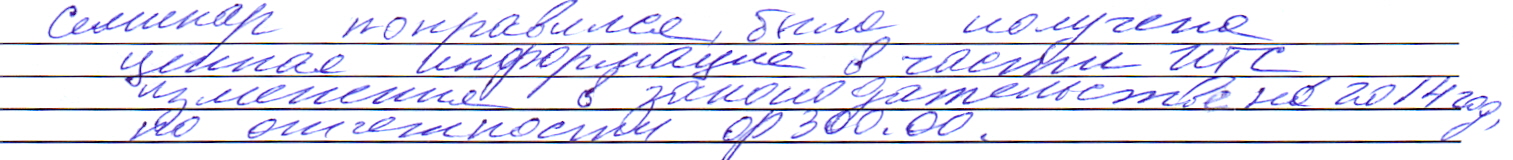 Семинар понравился, была получена
ценная информация в части ИТС
изменения в законодательстве на 2014 год,
по отчетности ф 300.00.